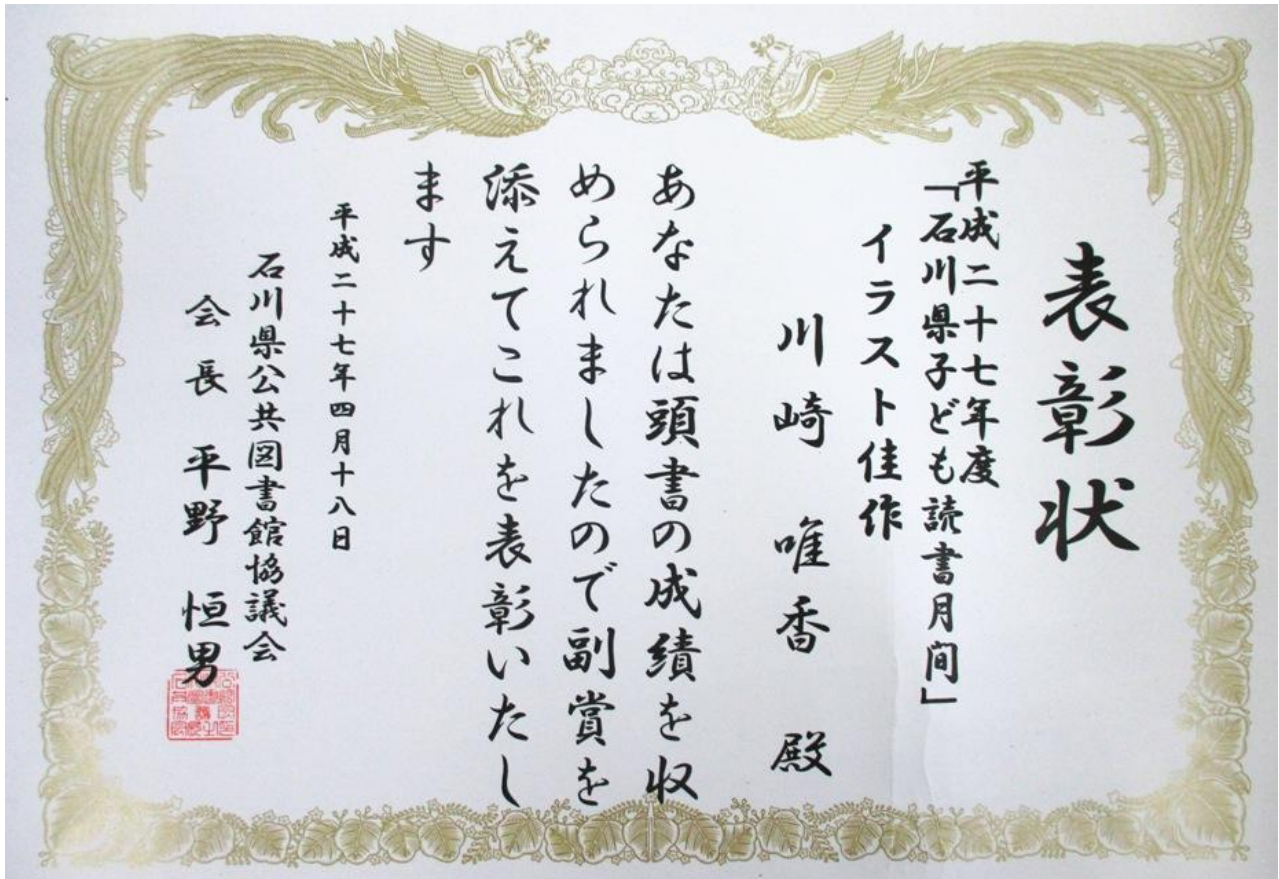 表彰状
平成二十七年度
「石川県子ども読書月間」
イラスト佳作
川崎 唯香 殿
あなたは頭書の成績を収
められましたので副賞を
添えてこれを表彰いたし
ます
平成二十七年四月十八日
石川県公共図書館協議会
会長 平野 恒男